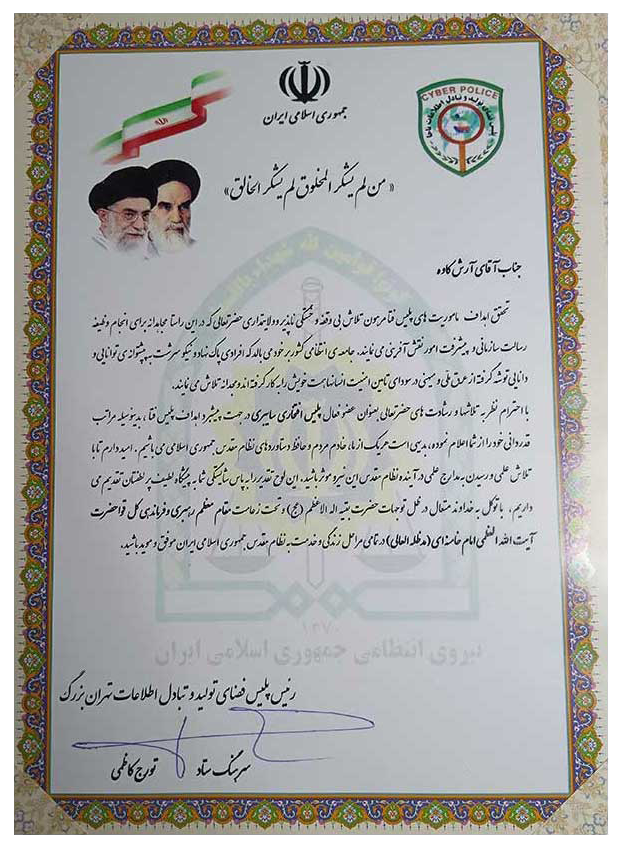 جمهوری اسلامی ایران
CYBER POLICE
پلیس فضای تولید و تبادل اطلاعات ناجا
« من لم یشکر المخلوق لم یشکر الخالق »
جناب آقای آرش کاوه
تحقق اهداف ماموریت های پلیس فتا مرهون تلاش بی وقفه و خستگی ناپذیر و ولایتمداری حضرتعالی که در این راستا مجاهدانه برای انجام وظیفه
رسالت سازمانی و پیشرفت امور نقش آفرینی می نمایند. جامعه ی انتظامی کشور بر خود می بالد که افرادی پاک نهاد و نیکو سرشت به پشتوانه ی توانایی و
دانایی توشه گرفته از عرق ملی و میهنی در سودای تامین امنیت انسانها همت خویش را به کار گرفته اند و مجدانه تلاش می نمایند.
با احترام نظر به تلاشها و رشادت های حضرتعالی بعنوان عضو فعال پلیس افتخاری سایبری در جهت پیشبرد اهداف پلیس فتا ، بدینوسیله مراتب
قدردانی خود را از شما اعلام نموده ، بدیهی است هر یک از ما، خادم مردم و حافظ دستاوردهای نظام مقدس جمهوری اسلامی می باشیم . امید دارم تا با
تلاش علمی و رسیدن به مدارج علمی در آینده نظام مقدس این نیرو موثر باشید. این لوح تقدیر را به پاس شایستگی شما به پیشگاه لطیف پر لطفتان تقدیم می
داریم ، با توکل به خداوند متعال در ظل توجهات حضرت بقیه اله الاعظم (عج) و تحت زعامت مقام معظم رهبری و فرماندهی کل قوا حضرت
آیت الله العظمی امام خامنه ای (مدظله العالی) در تمامی مراحل زندگی و خدمت به نظام مقدس جمهوری اسلامی ایران موفق و موید باشید.
۱۳۷۰
نیروی انتظامی جمهوری اسلامی ایران
رئیس پلیس فضای تولید و تبادل اطلاعات تهران بزرگ
سرهنگ ستاد تورج کاظمی